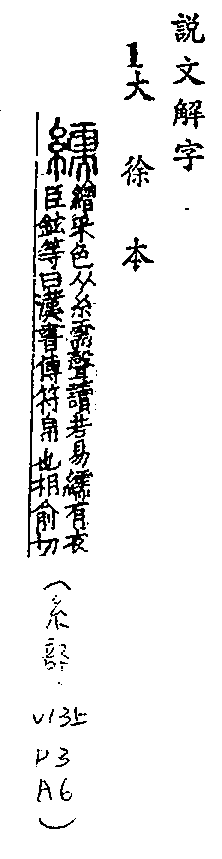 説文解字
1大徐本
繻繒采色从糸需聲讀若易繻有衣
臣鉉等曰漢書傳符帛也相俞切
(糸部.
V13上
P3
A6)